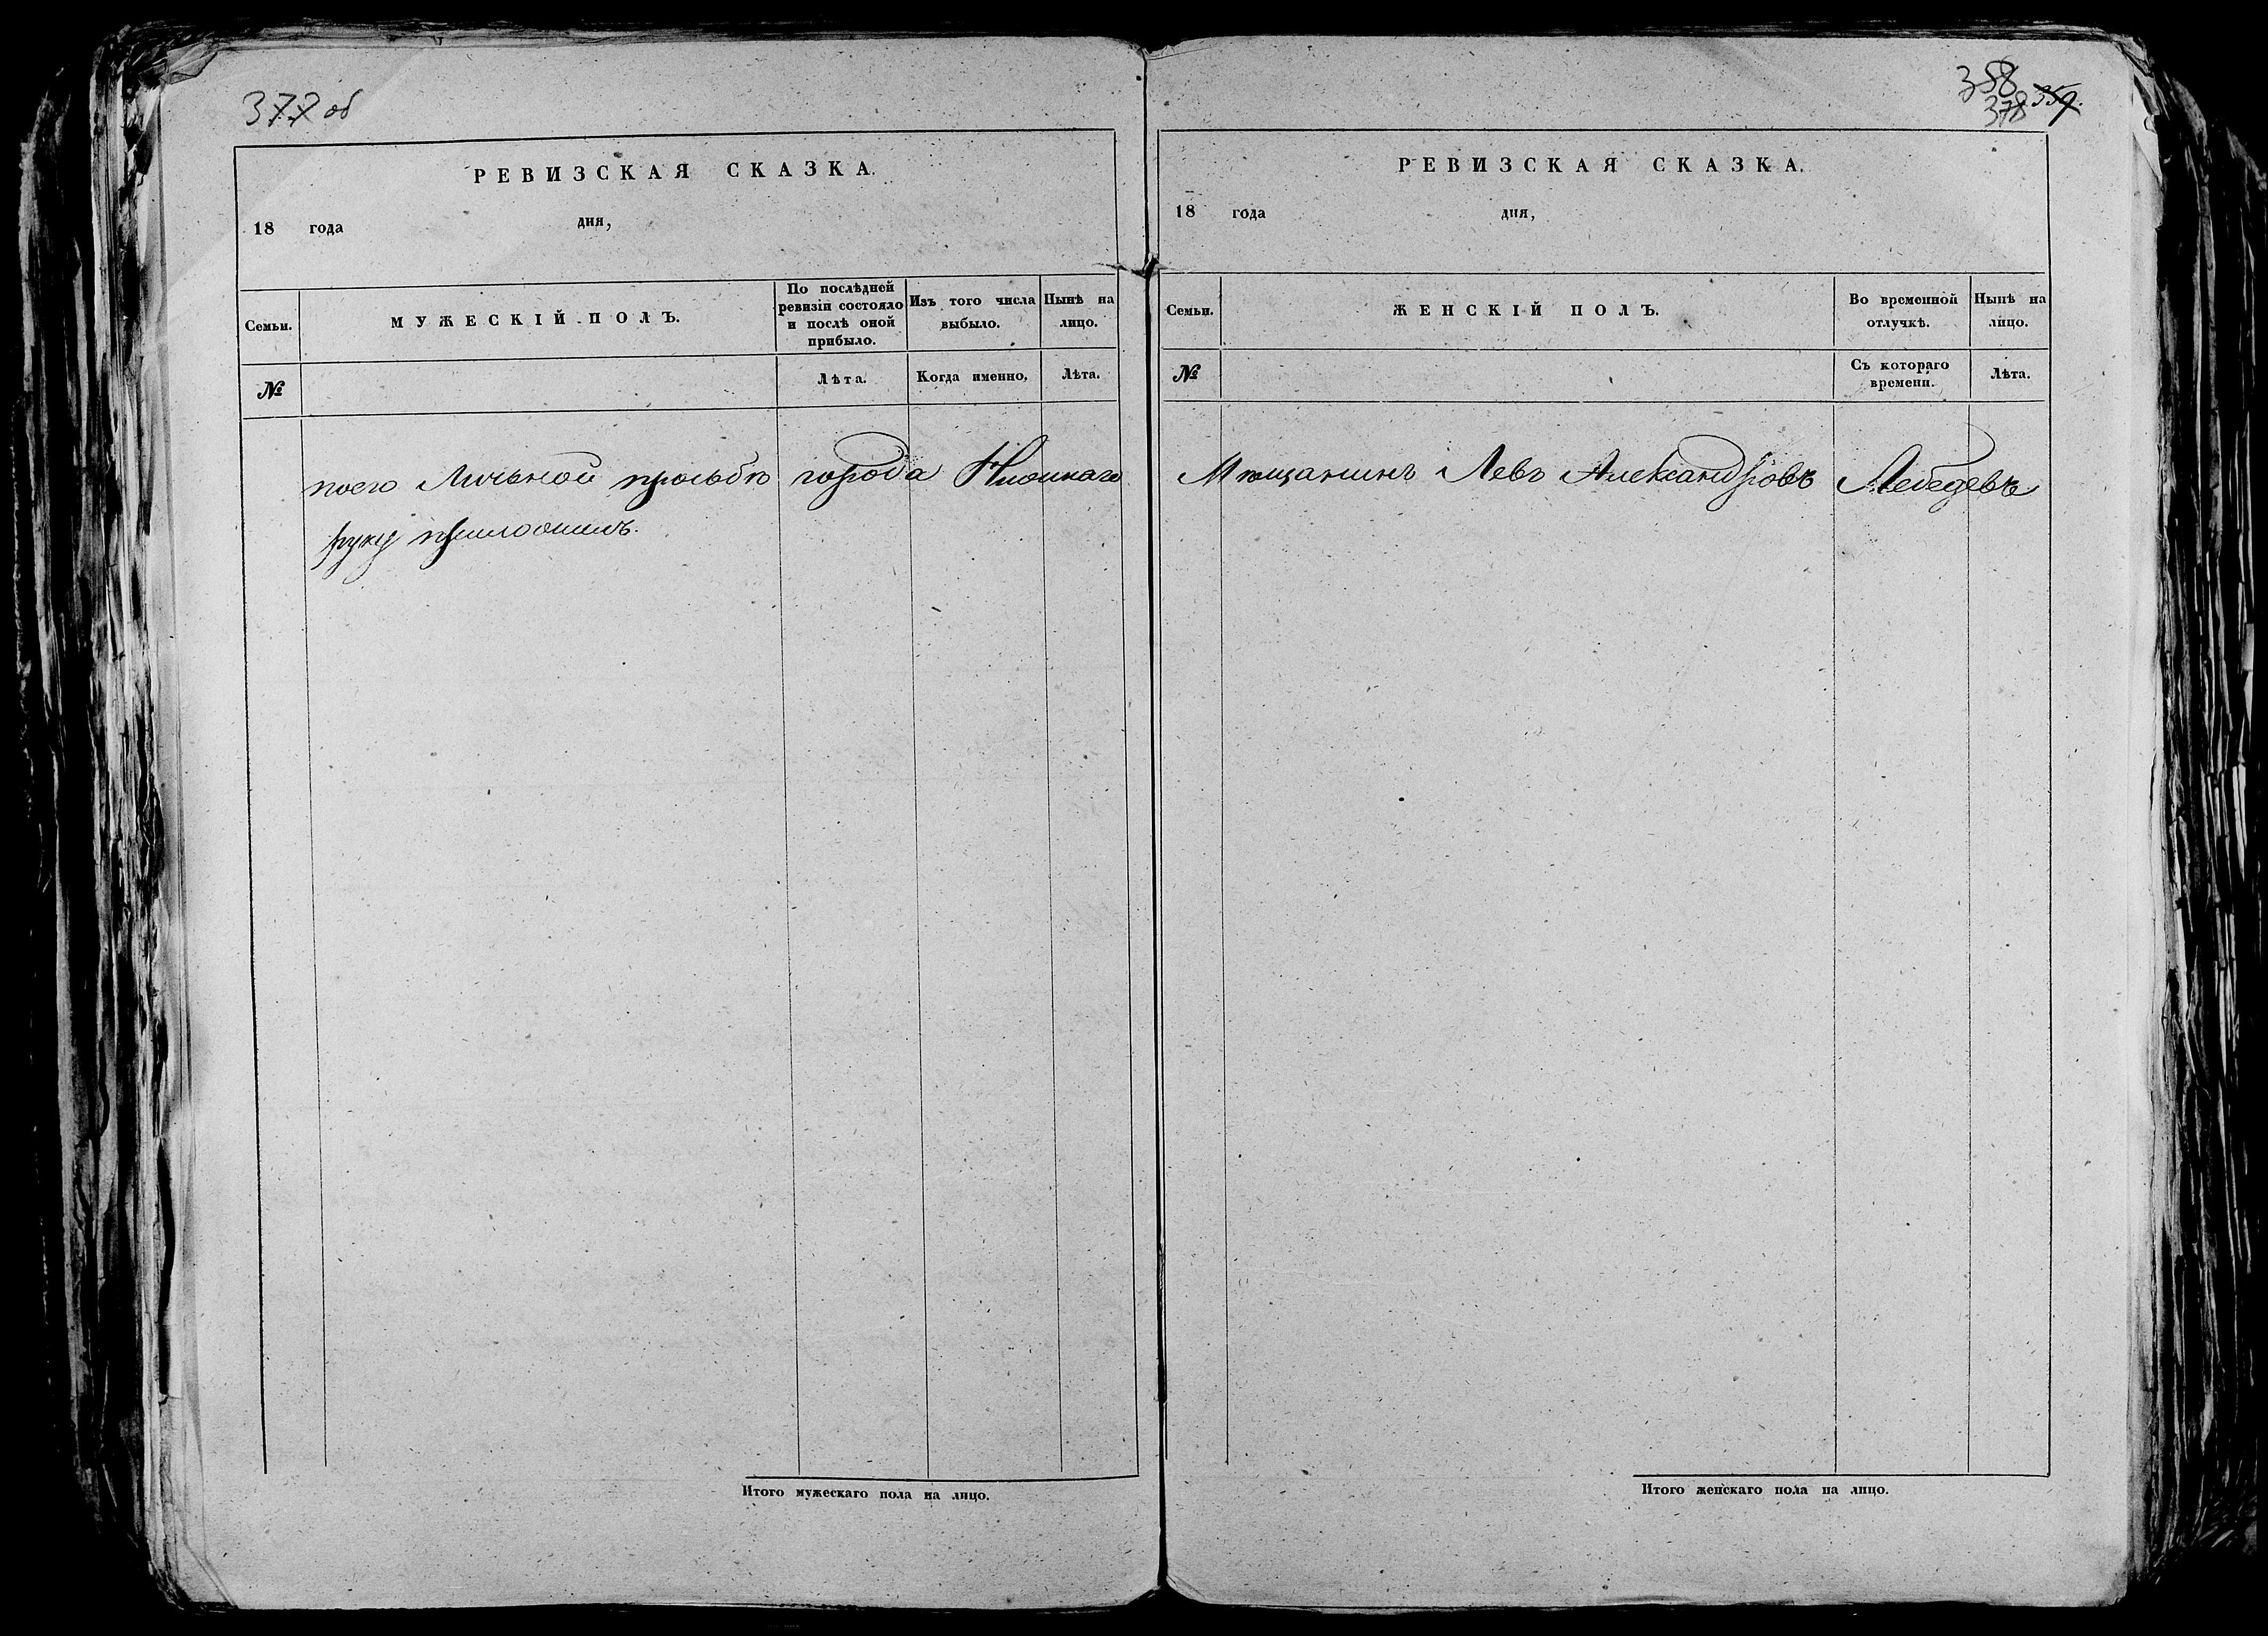 377 об
РЕВИЗСКАЯ СКАЗКА.
18 года дня,
Семьи. МУЖЕСКІЙ ПОЛЪ. По послѣдней ревизіи состояло и послѣ оной прибыло. Изъ того числа выбыло. Нынѣ на лицо.
№ Лѣта. Когда именно, Лѣта.
поего Личьной прозьбѣ города
руку приложилъ.
Итого мужескаго пола на лицо.
358
378 359.
РЕВИЗСКАЯ СКАЗКА.
18 года дня,
Семьи. ЖЕНСКІЙ ПОЛЪ. Во временной отлучкѣ. Нынѣ на лицо.
№ Съ котораго времени. Лѣта.
Мѣщанинъ Левъ Александровъ Лебедевъ
Итого женскаго пола на лицо.